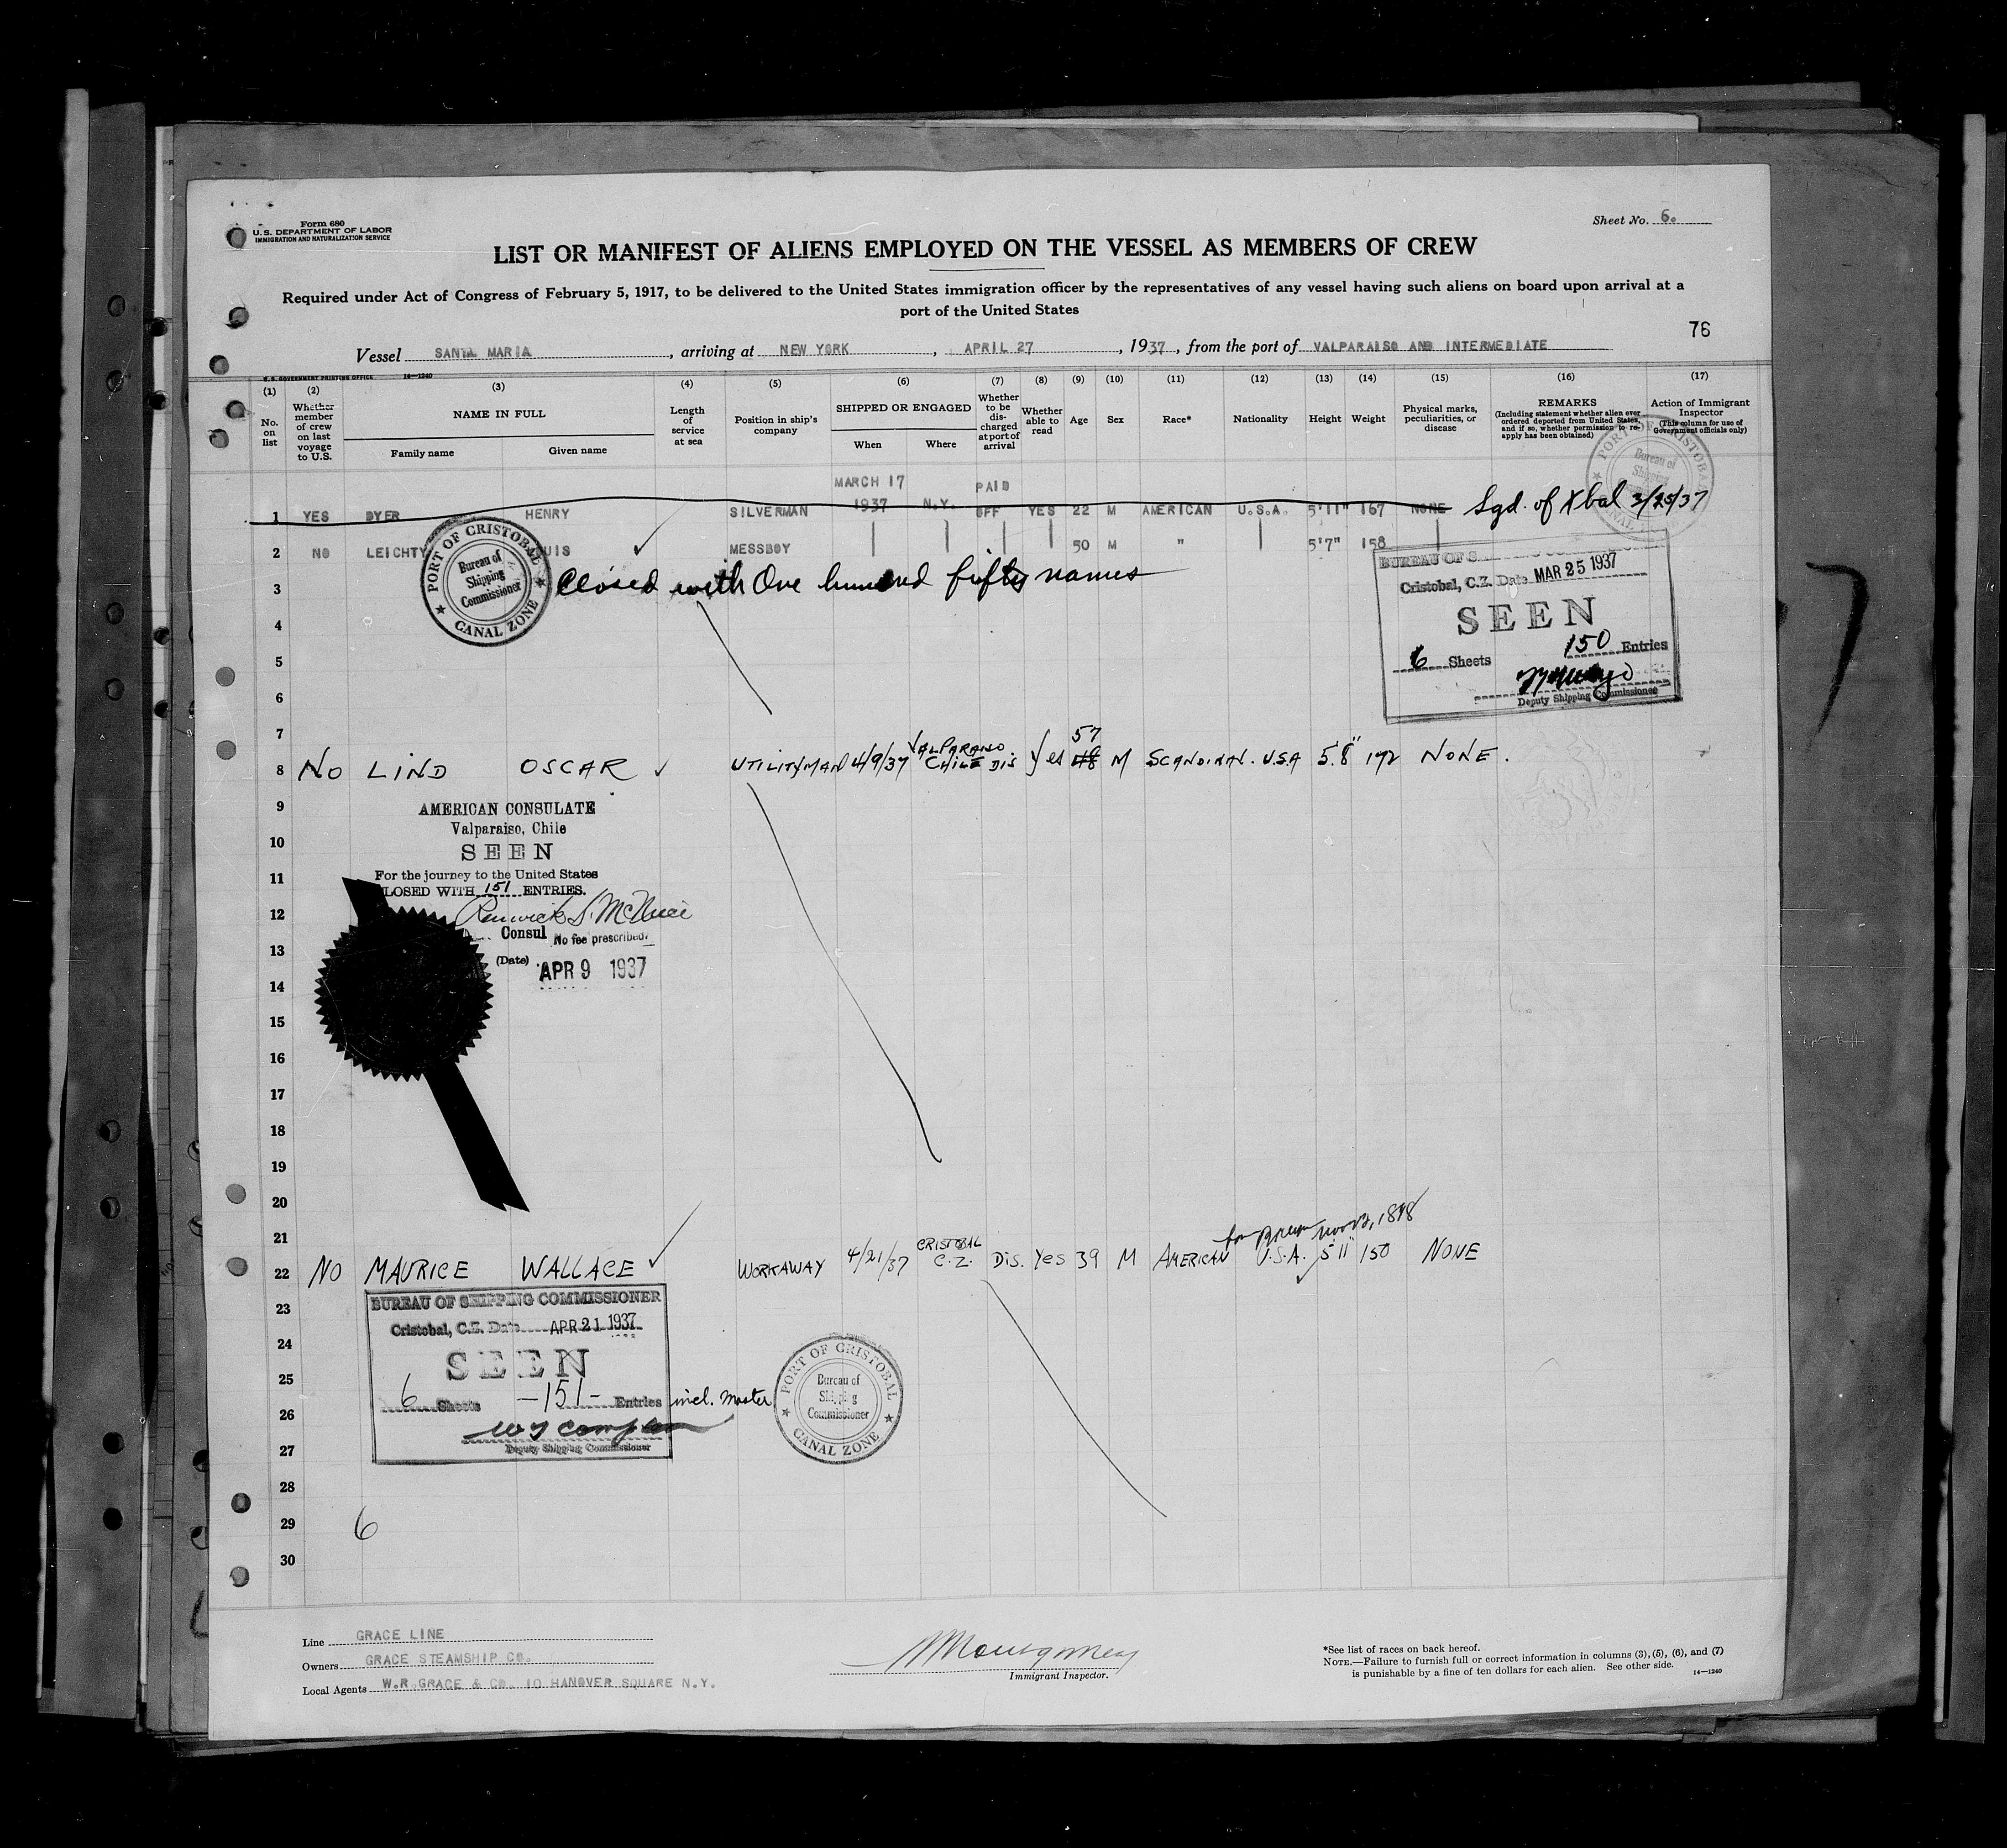 Form 680
U.S. DEPARTMENT OF LABOR
IMMIGRATION AND NATURALIZATION SERVICE
Sheet No. 6.
LIST OR MANIFEST OF ALIENS EMPLOYED ON THE VESSEL AS MEMBERS OF CREW
Required under Act of Congress of February 5, 1917, to be delivered to the United States immigration officer by the representatives of any vessel having such aliens on board upon arrival at a
port of the United States
76
Vessel SANTA MARIA, arriving at NEW YORK, APRIL 27, 1937, from the port of VALPARAISO AND INTERMEDIATE
U.S. GOVERNMENT PRINTING OFFICE 14—1240
(1) (2) (3) (4) (5) (6) (7) (8) (9) (10) (11) (12) (13) (14) (15) (16) (17)
No. on list
Whether member of crew on last voyage to U.S.
NAME IN FULL
Family name
Given name
Length of service at sea
Position in ship's company
SHIPPED OR ENGAGED
When
Where
Whether to be discharged at port of arrival
Whether able to read
Age
Sex
Race*
Nationality
Height
Weight
Physical marks, peculiarities, or disease
REMARKS
(Including statement whether alien ever ordered deported from United States, and if so, whether permission to reapply has been obtained)
Action of Immigrant Inspector
(This column for use of Government officials only)
PORT OF CRISTOBAL
Bureau of
MARCH 17 PAID
1 YES DYER HENRY SILVERMAN 1937 N.Y. OFF YES 22 M AMERICAN U.S.A. 5'11" 167 NONE Sgd. of Xbal 3/25/37
2 NO LEICHTY UIS MESSBOY 50 M " 5'7" 158
PORT OF CRISTOBAL
Bureau of
Shipping
Commissioner
CANAL ZONE
3 Closed with One hundred fifty names
BUREAU OF S
Cristobal, C.Z. Date MAR 25 1937
SEEN
6 Sheets 150 Entries
Deputy Shipping Commissioner
4
5
6
7
57
8 NO LIND OSCAR UTILITYMAN 4/9/37 VALPARAISO CHILE DIS yes 48 M SCANDINAV. U.S.A 5'8" 192 NONE.
9
AMERICAN CONSULATE
Valparaiso, Chile
10
SEEN
11
For the journey to the United States
LOSED WITH 151 ENTRIES.
12
Renwick S. McNiece
Consul No fee prescribed.
13
(Date) APR 9 1937
14
15
16
17
18
19
20
21
22 NO MAURICE WALLACE WORKAWAY 4/21/37 CRISTOBAL C.Z. DIS. YES 39 M AMERICAN U.S.A. 5'11" 150 NONE
23
BUREAU OF SHIPPING COMMISSIONER
Cristobal, C.Z. Date APR 21 1937
24
SEEN
25
6 Sheets —151— Entries incl. Master
26
27
Deputy Shipping Commissioner
PORT OF CRISTOBAL
Bureau of
Shipping
Commissioner
CANAL ZONE
28
29 6
30
Line GRACE LINE
Owners GRACE STEAMSHIP CO.
Local Agents W.R.GRACE & CO. 10 HANOVER SQUARE N.Y.
Montgomery
Immigrant Inspector.
*See list of races on back hereof.
NOTE.—Failure to furnish full or correct information in columns (3), (5), (6), and (7)
is punishable by a fine of ten dollars for each alien. See other side. 14—1240